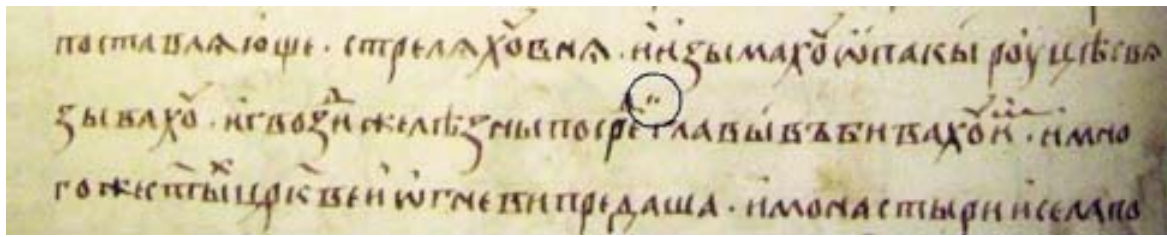 поставлѧюще · стрелѧхꙋ в нѧ · и изымахꙋ ѡпакы роуцѣ свѧ
зывахꙋ · и гвозⷣи желѣзны посреⷣ главы въбивахꙋ иⷨ · и мно
го же ст҃ыⷯ црк҃веи ѡгневи предаша · и монастыри и села по